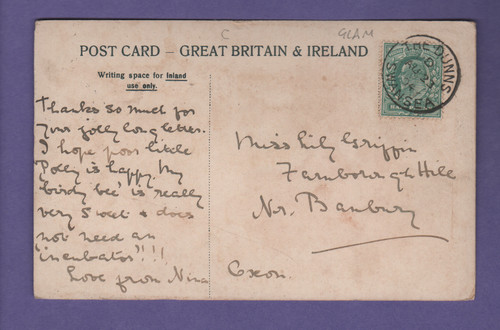 C
GLAM
POST CARD – GREAT BRITAIN & IRELAND
Writing space for Inland
use only.
THE DUNNS
SWANSEA
Thanks so much for
your jolly long letter.
I hope poor little
Polly is happy. My
'birdy bee' is really
very 5 oct & does
not need an
'incubator'!!!
Love from Nina
Miss Lily Griffin
Farnborough Hill
Nr. Banbury
Oxon.